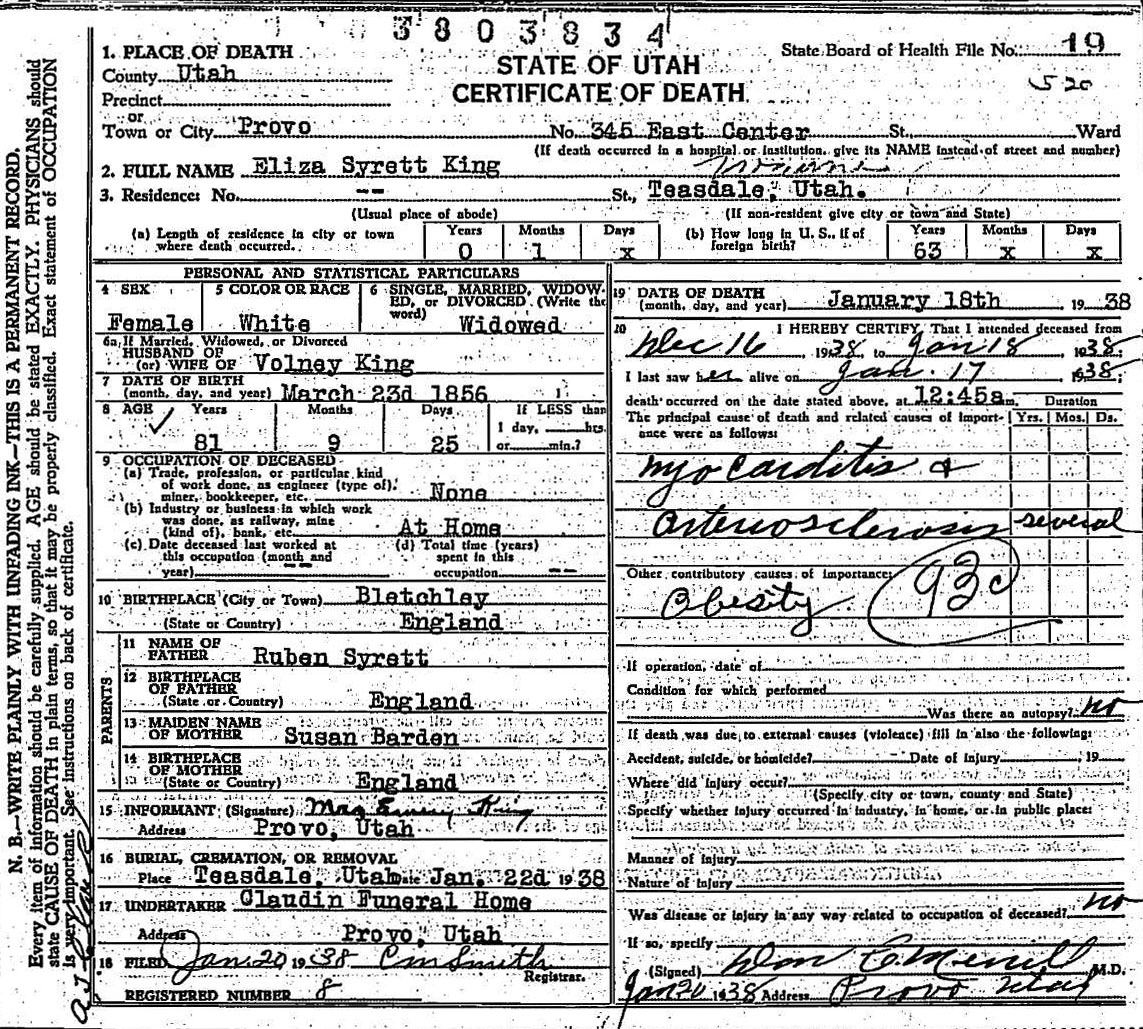 3803834
State Board of Health File No. 19
520
STATE OF UTAH
CERTIFICATE OF DEATH
1. PLACE OF DEATH
County Utah
Precinct
or
Town or City Provo No. 345 East Center St. Ward
(If death occurred in a hospital or institution, give its NAME instead of street and number)
2. FULL NAME Eliza Syrett King
3. Residence: No. -- St., Teasdale, Utah.
(Usual place of abode) (If non-resident give city or town and State)
(a) Length of residence in city or town where death occurred. Years 0 Months 1 Days x
(b) How long in U. S., if of foreign birth? Years 63 Months x Days x
PERSONAL AND STATISTICAL PARTICULARS
4 SEX Female
5 COLOR OR RACE White
6 SINGLE, MARRIED, WIDOWED, or DIVORCED (Write the word) Widowed
6a If Married, Widowed, or Divorced
HUSBAND OF
(or) WIFE OF Volney King
7 DATE OF BIRTH
(month, day, and year) March 23d 1856
8 AGE Years 81 Months 9 Days 25 If LESS than 1 day, hrs. or min.?
9 OCCUPATION OF DECEASED
(a) Trade, profession, or particular kind
of work done, as engineer (type of),
miner, bookkeeper, etc. None
(b) Industry or business in which work
was done, as railway, mine
(kind of), bank, etc. At Home
(c) Date deceased last worked at this occupation (month and year) --
(d) Total time (years) spent in this occupation --
10 BIRTHPLACE (City or Town) Bletchley
(State or Country) England
PARENTS
11 NAME OF
FATHER Ruben Syrett
12 BIRTHPLACE
OF FATHER
(State or Country) England
13 MAIDEN NAME
OF MOTHER Susan Barden
14 BIRTHPLACE
OF MOTHER
(State or Country) England
15 INFORMANT (Signature) Mrs King
Address Provo, Utah
16 BURIAL, CREMATION, OR REMOVAL
Place Teasdale, Utah Date Jan. 22d 1938
17 UNDERTAKER Claudin Funeral Home
Address Provo, Utah
18 FILED Jan. 20 1938 C M Smith
Registrar.
REGISTERED NUMBER 8
19 DATE OF DEATH
(month, day, and year) January 18th 1938
20 I HEREBY CERTIFY, That I attended deceased from
Dec 16 1938, to Jan 18 1938;
I last saw her alive on Jan. 17 1938;
death occurred on the date stated above, at 12:45a m. Duration
The principal cause of death and related causes of importance were as follows: Yrs. Mos. Ds.
Myocarditis &
arteriosclerosis several
Other contributory causes of importance:
Obesity
93c
If operation, date of
Condition for which performed
Was there an autopsy? no
If death was due to external causes (violence) fill in also the following:
Accident, suicide, or homicide? Date of injury 19
Where did injury occur?
(Specify city or town, county and State)
Specify whether injury occurred in industry, in home, or in public place:
Manner of injury
Nature of injury
Was disease or injury in any way related to occupation of deceased? no
If so, specify
(Signed) Don C. Merrill M.D.
Jan 20 1938 Address Provo Utah
N. B.—WRITE PLAINLY WITH UNFADING INK—THIS IS A PERMANENT RECORD.
Every item of information should be carefully supplied. AGE should be stated EXACTLY. PHYSICIANS should
state CAUSE OF DEATH in plain terms, so that it may be properly classified. Exact statement of OCCUPATION
is very important. See Instructions on back of certificate.